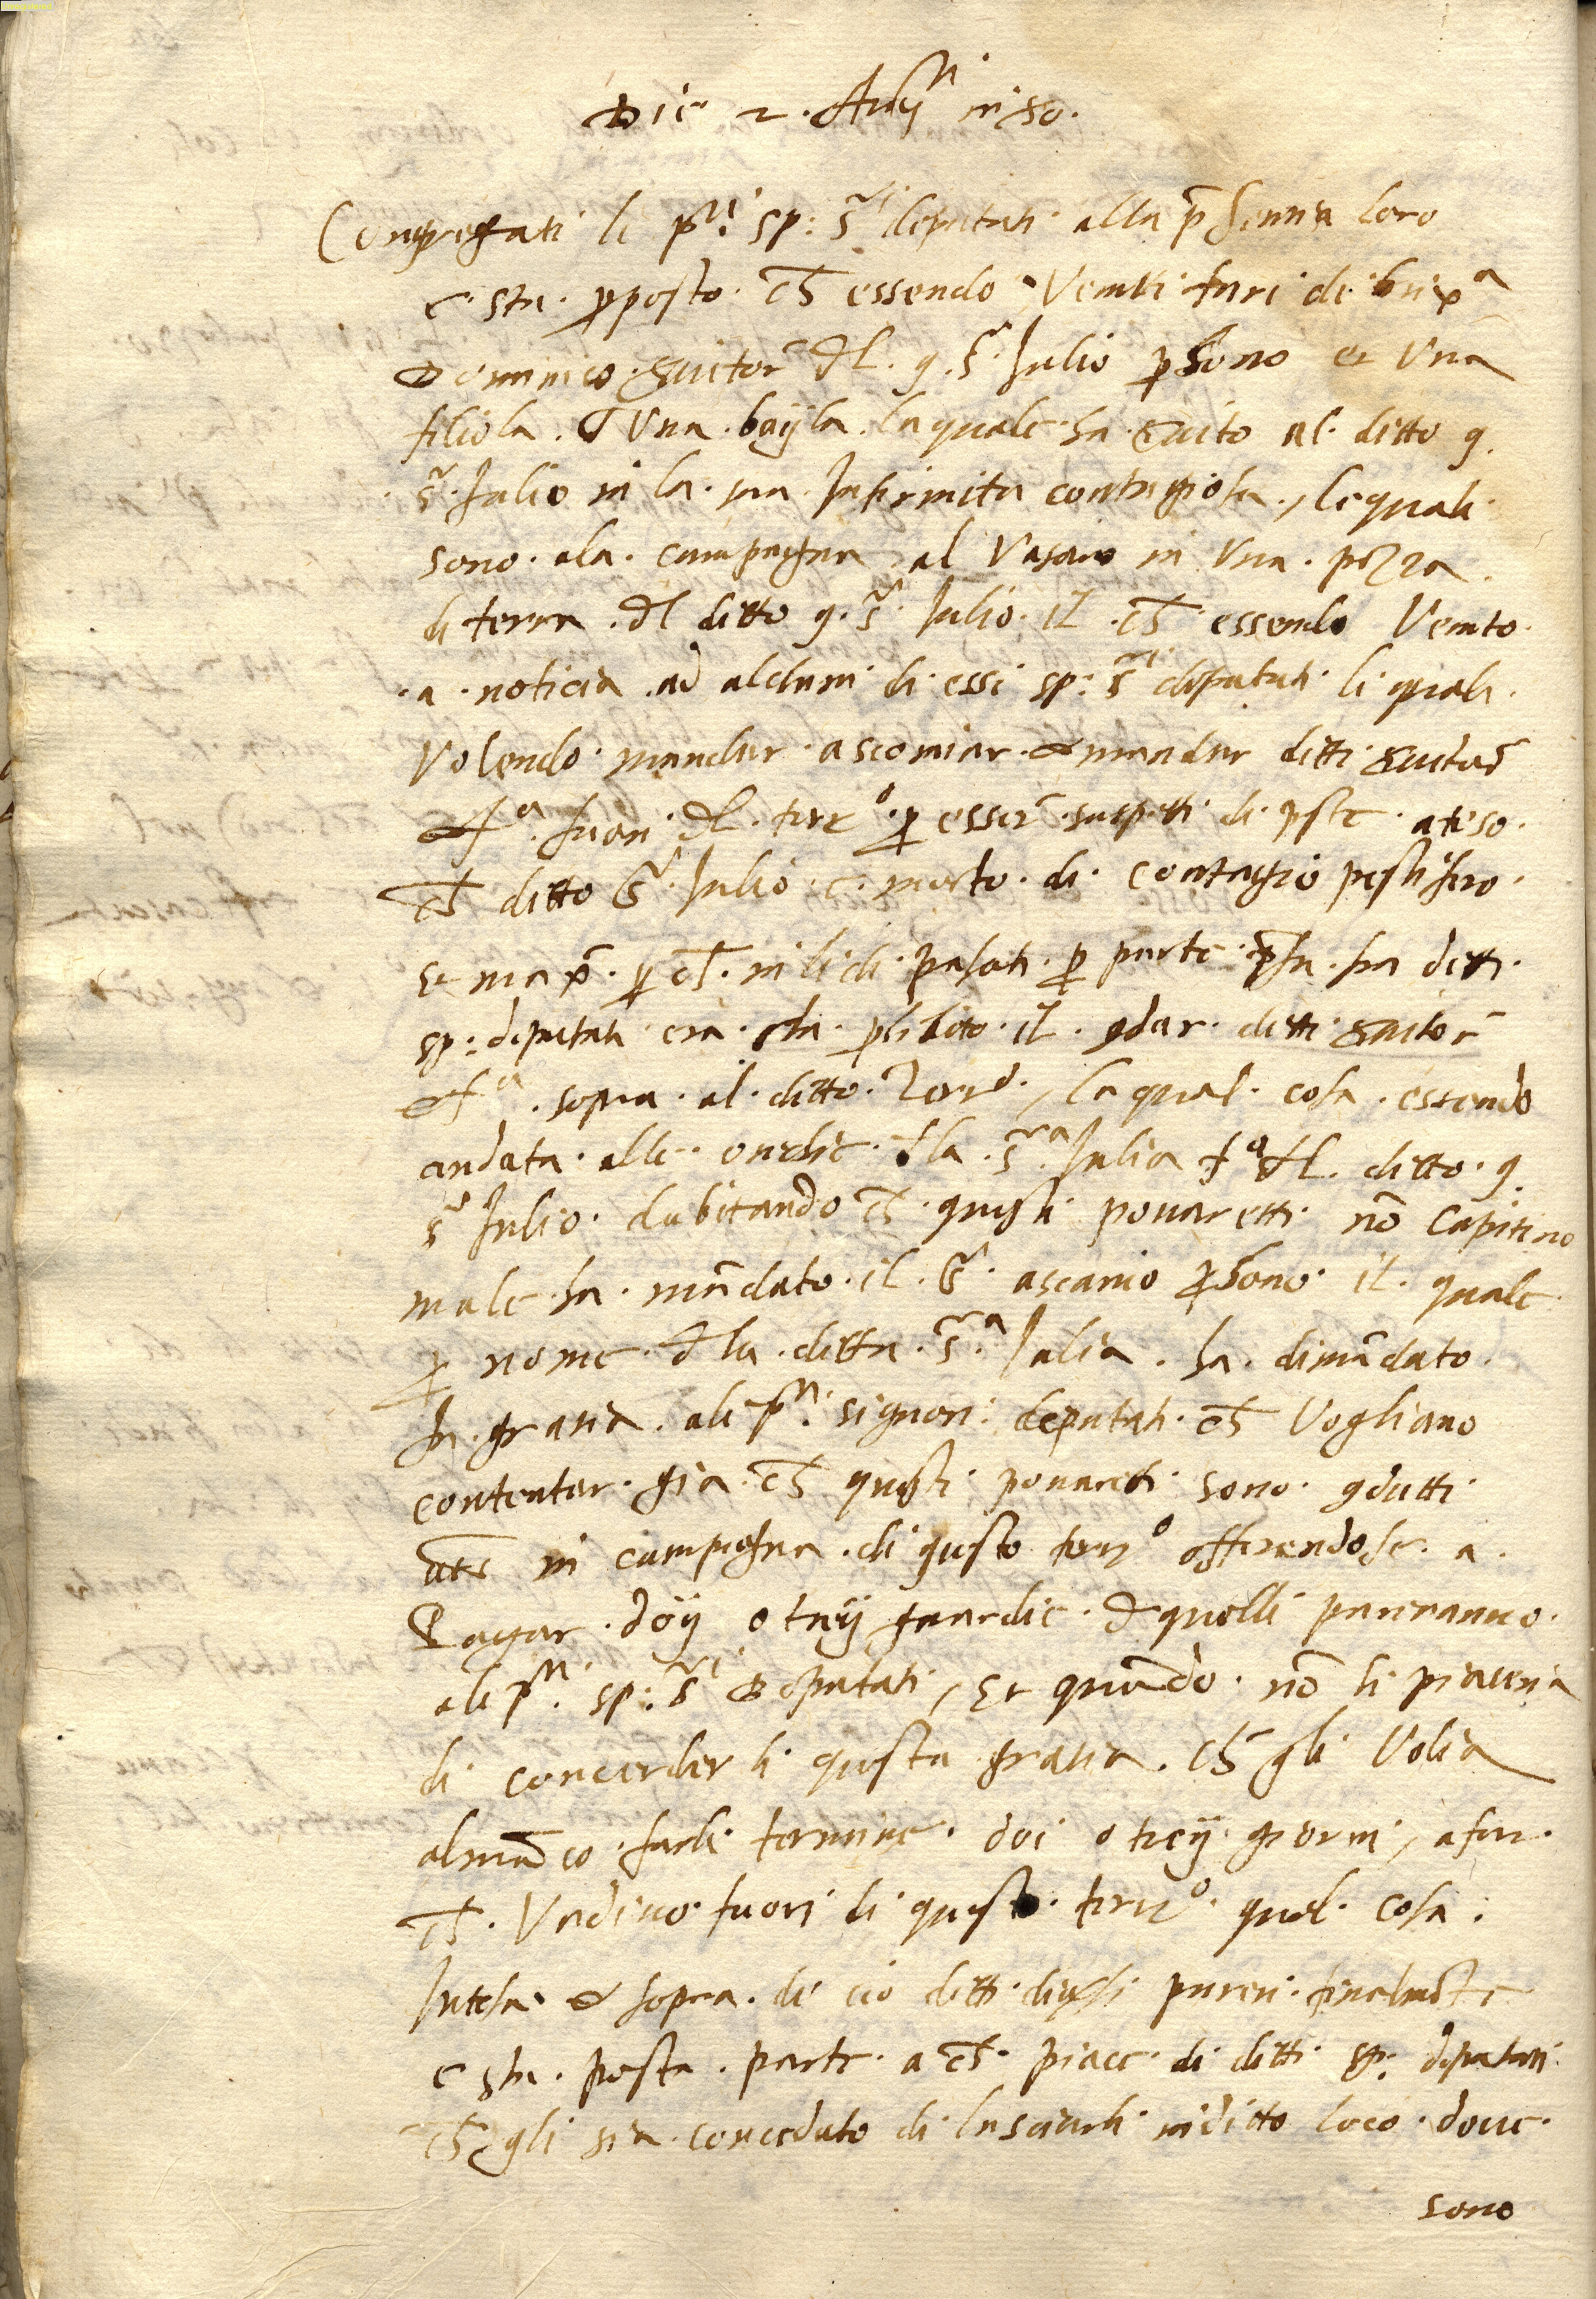 Die 2. Augti in 80.
Congregati li pti. sp: Sri deputati alla pnsentia loro
è sta. pposto. ch essendo Venuti furi di brixa
Dominico Suitor dl. q. Sr. Julio psono et una
filiola. & Una. bayla. la quale. ha suito al. ditto q.
Sr. Julio in la. sua. Infirmita contagiosa, le quali
sono. ala. campagna al Vasaro in una. pezza.
di terra. dl ditto q. Sr. Julio. il. ch essendo Venuto
a. noticia ad alchuni di essi sp: Sri deputati li quali.
Volendo mandar ascomiar & mandar ditti Suitor
& fa. fuori dl. terro. p esser suspetti di pste. ateso.
ch ditto Sr. Julio è morto. di. contagio pestifero
Et max. p ch. in li di pasati. p parte psa. fra detti
sp: deputati era sta. phibito il. qdar. ditti suitor
& fa. sopra al ditto. Terro, la qual. cosa. essendo
andata. alle orechie. dla. Sra. Julia fa dl. ditto. q.
Sr Julio. dubitando ch questi pouaretti. no capitino
male ha. madato il. Sr. ascanio psono. il. quale
p nome. dla. ditta. Sra. Julia. ha. dimadato.
In gratia. ali pti. signori deputati. ch Vogliano
contentar. gia ch questi pouareti sono. qdutti
in campagna. di questo terro offerendose. a.
Pagar. doij o treij guardie. & quelli parerano.
ali pti. sp: Sri deputati, Et quado. no li piaceria
di conceder li questa gratia. ch gli Volia
almaco farli termine. doi o treij giorni, a fin.
ch. Vadino fuori di questo. terro. qual. cosa.
Intesa. & sopra. di cio ditti diuersi pareri. finalmete
è sta. posta. parte. a ch. piace. di ditti sp. deputati
ch gli sia concedato di lasciarli in ditto loco. doue.
sono